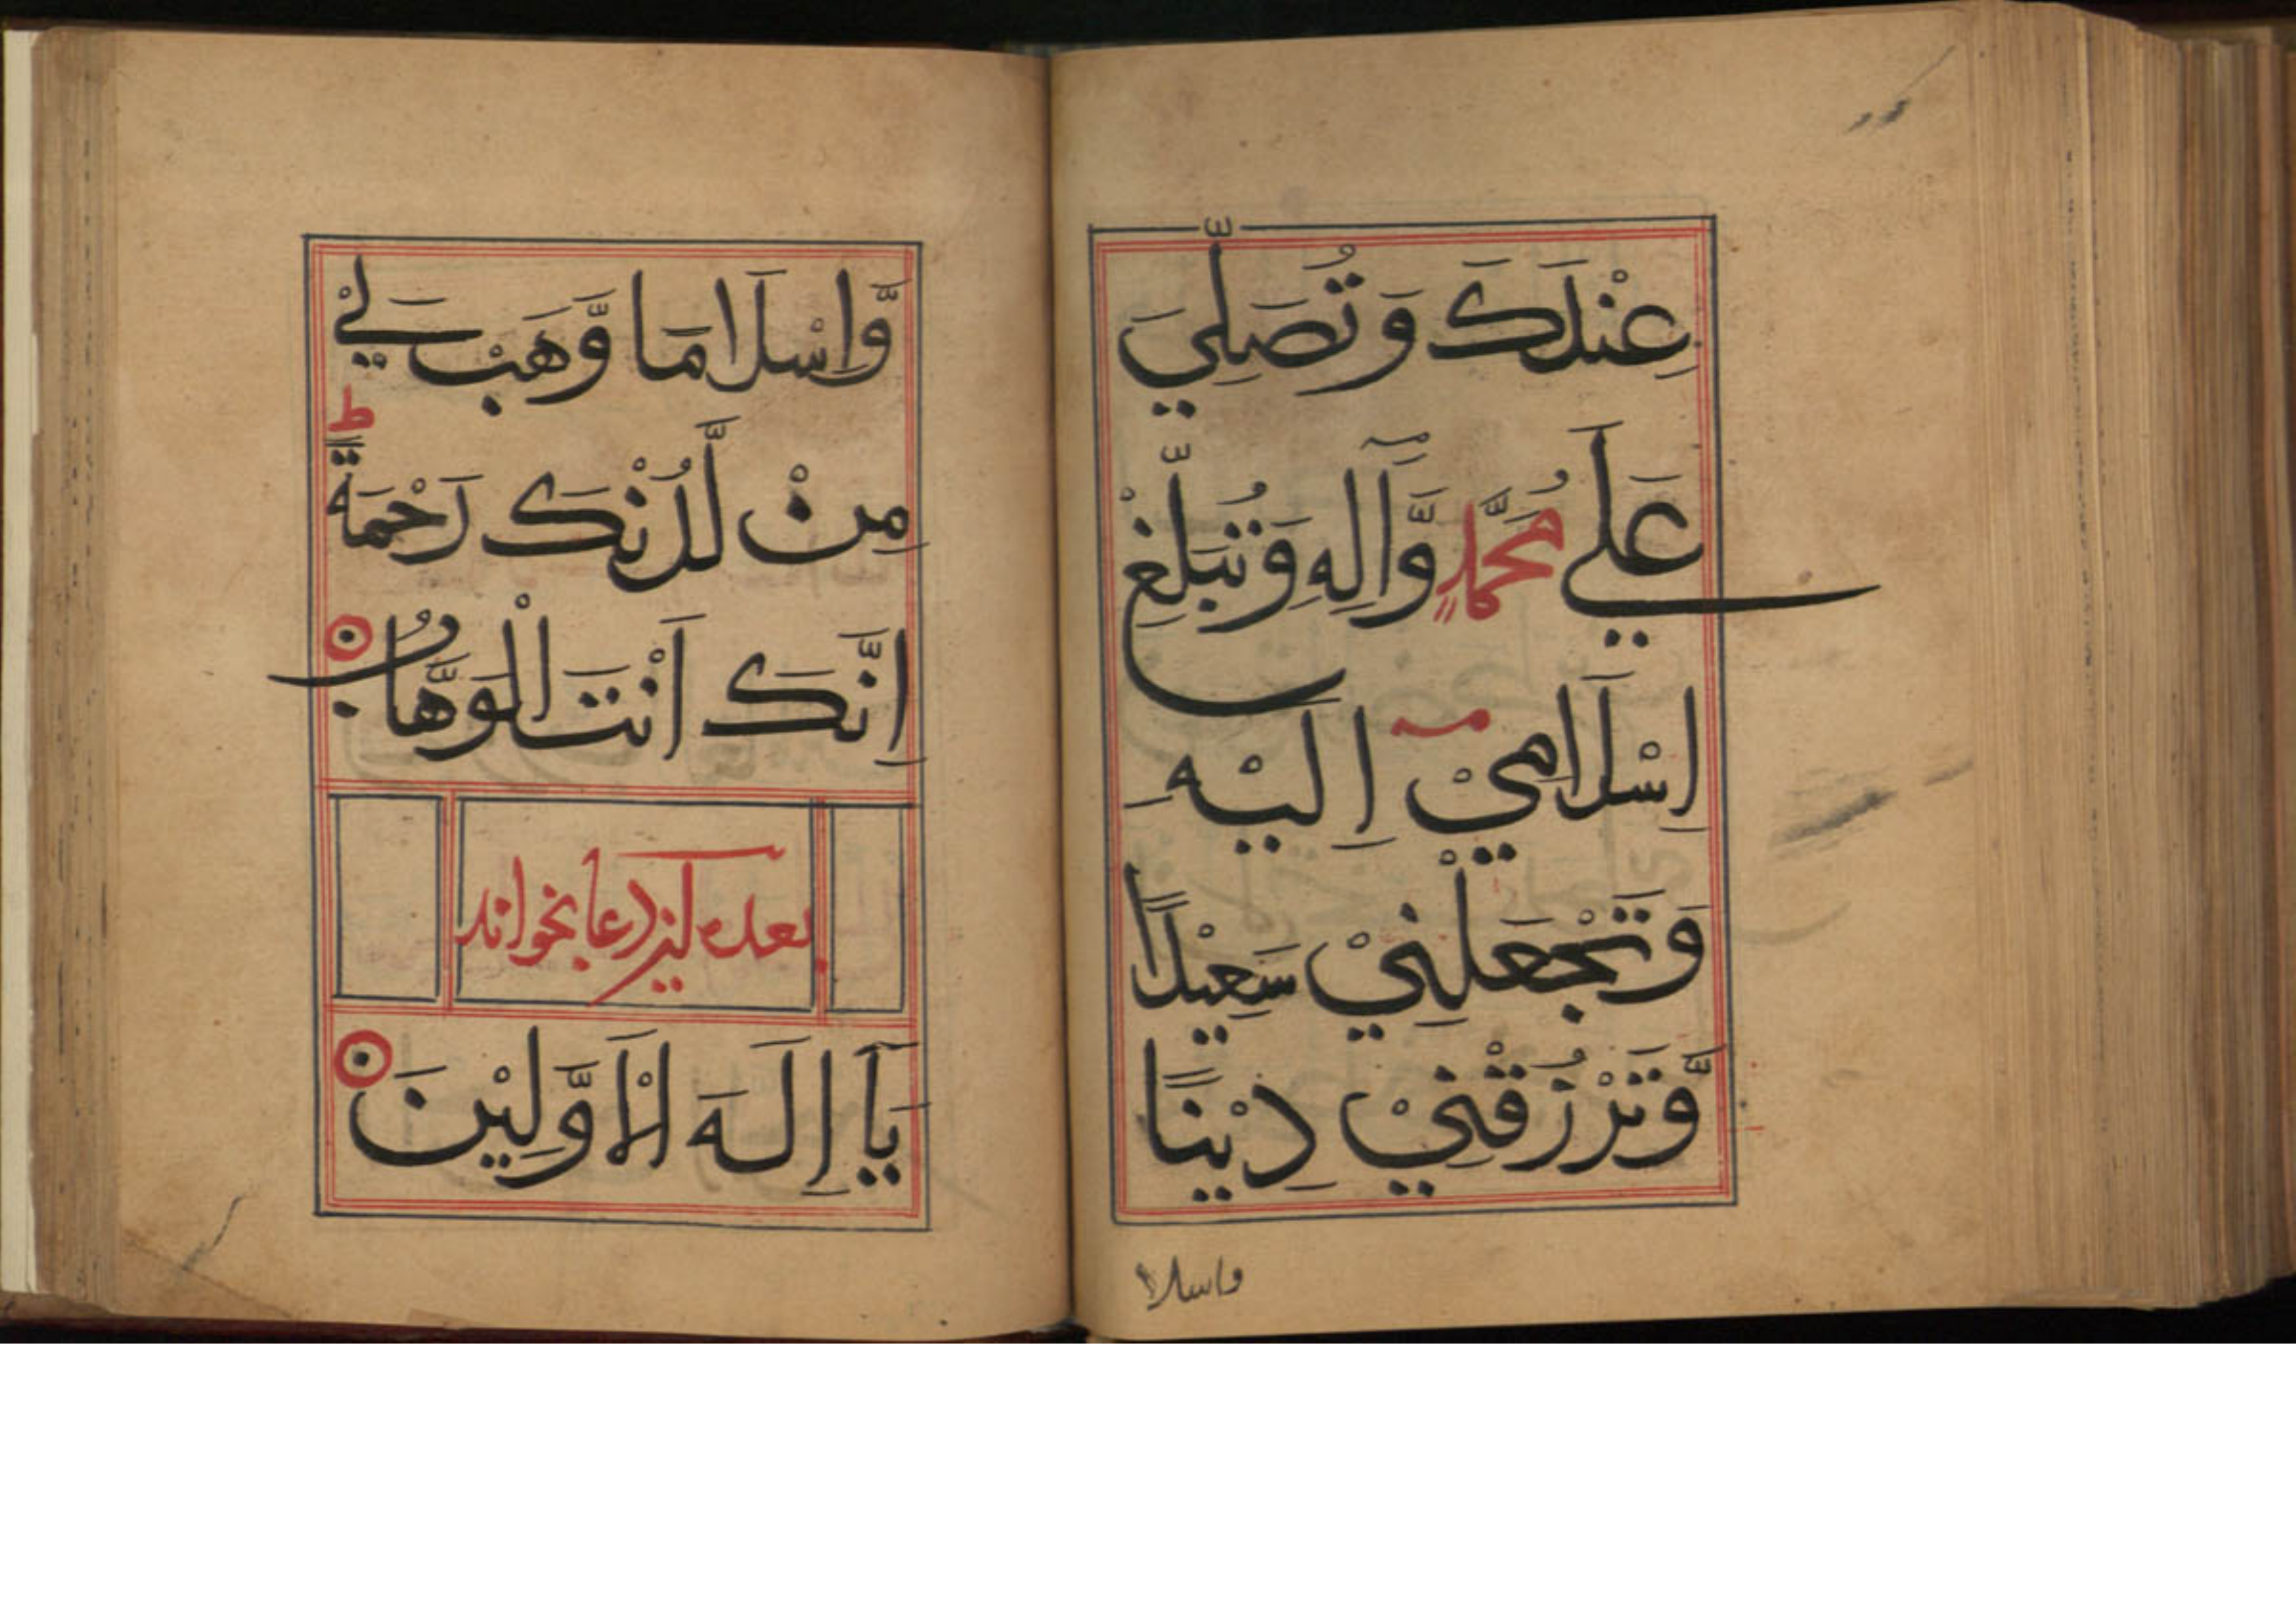 عِنْدَكَ وَتُصَلِّيَ
عَلَي مُحَمَّدٍ وَّآلِهِ وَتُبَلِّغْ
اِسْلَامِيْ اِلَيْهِ
وَتَجْعَلَنِيْ سَعِيْدًا
وَّتَرْزُقَنِيْ دِيْنًا
واسلا
وَّاِسْلَامًا وَّهَبْ لِيْ
مِنْ لَّدُنْكَ رَحْمَةً ط
اِنَّكَ اَنْتَ الْوَهَّابُ
بعده اين دعا بخواند
يَآ اِلَهَ الْاَوَّلِيْنَ